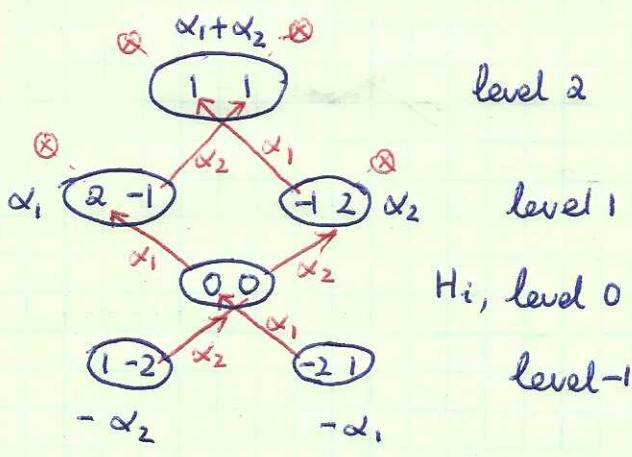 α₁+α₂
⊗ ⊗
1 1 level 2
⊗ α₂ α₁ ⊗
α₁ 2 -1 -1 2 α₂ level 1
α₁ α₂
0 0 Hi, level 0
α₂ α₁
1 -2 -2 1 level-1
- α₂ -α₁